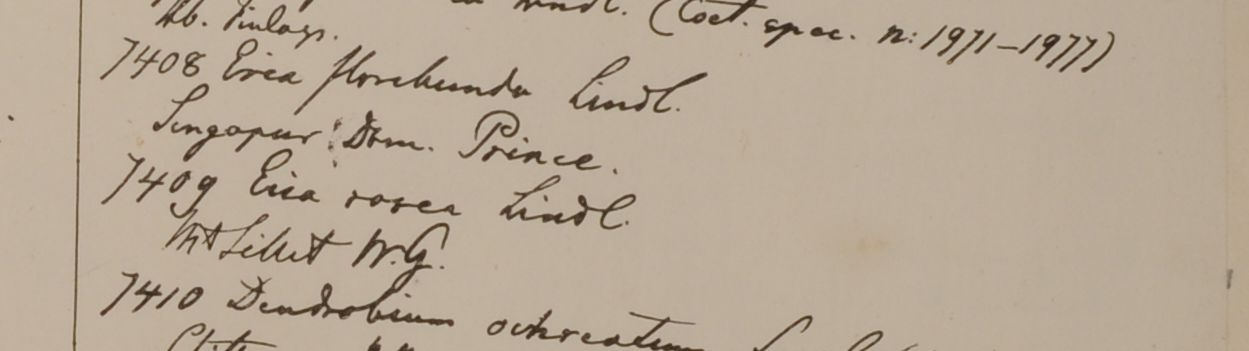 Lindl. (Coet. spec. n: 1971–1977)
Hb. Finlays.
7408 Eria floribunda Lindl.
Singapur Dom. Prince.
7409 Eria rosea Lindl.
Mt Sillet W.G.
7410 Dendrobium ochreatum